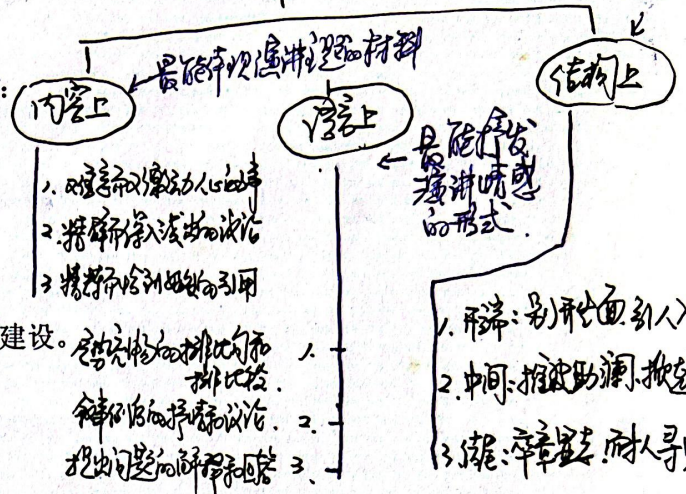 最能体现演讲主题的材料
内容上
语言上
结构上
最能抒发
演讲情感
的形式.
1. 寓意而又激动人心的事
2. 精辟而深入浅出的议论
3. 精彩而恰到好处的引用
建设。
气势充畅的排比句和
排比段. 1.
叙事后的抒情和议论. 2.
提出问题的解释和回答 3.
1. 开端:别开生面.引人
2. 中间:推波助澜.掀
3. 结尾:卒章显志.耐人寻